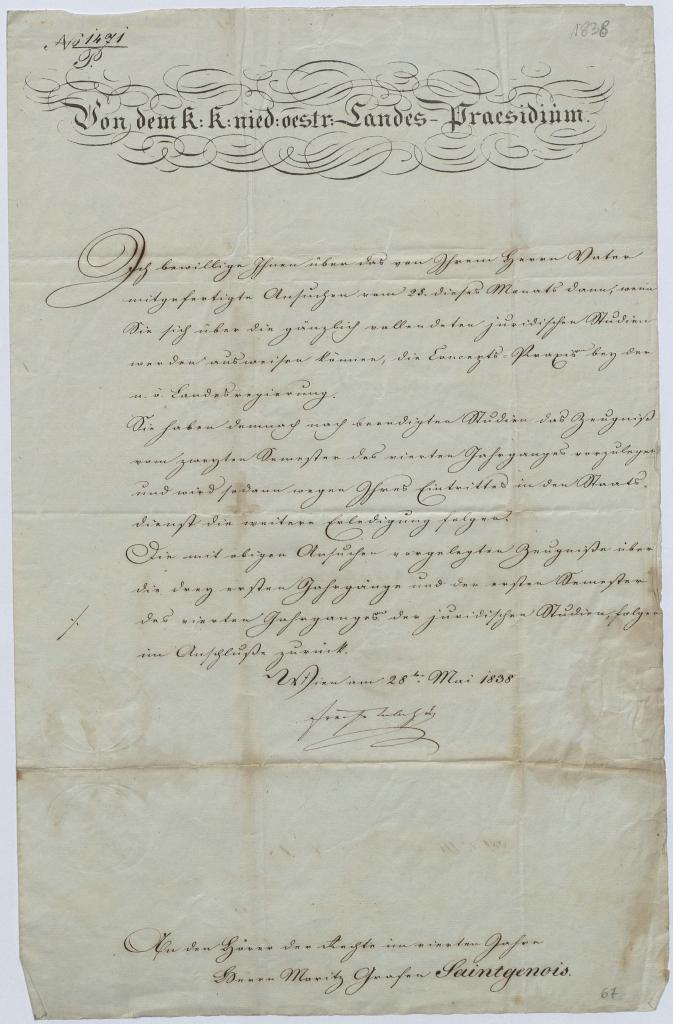 No 1471
P.
1838
Von dem k: k: nied: oestr: Landes-Praesidium.
Ich bewillige Ihnen über das von Ihrem Herrn Vater
mitgefertigte Ansuchen vom 25. dieses Monats dann, wenn
Sie sich über die gänzlich vollendeten juridischen Studien
werden ausweisen können, die Concepts-Praxis bey der
n. ö. Landesregierung.
Sie haben demnach nach beendigten Studien das Zeugniß
vom zweyten Semester des vierten Jahrganges vorzulegen
und wird sodann wegen Ihres Eintrittes in den Staats-
dienst die weitere Erledigung folgen.
Die mit obigen Ansuchen vorgelegten Zeugniße über
die drey ersten Jahrgänge und den ersten Semester
./. des vierten Jahrganges der juridischen Studien, folgen
im Anschluße zurück.
Wien am 28ten Mai 1838
An den Hörer der Rechte im vierten Jahre
Herrn Moritz Grafen Saintgenois.
67